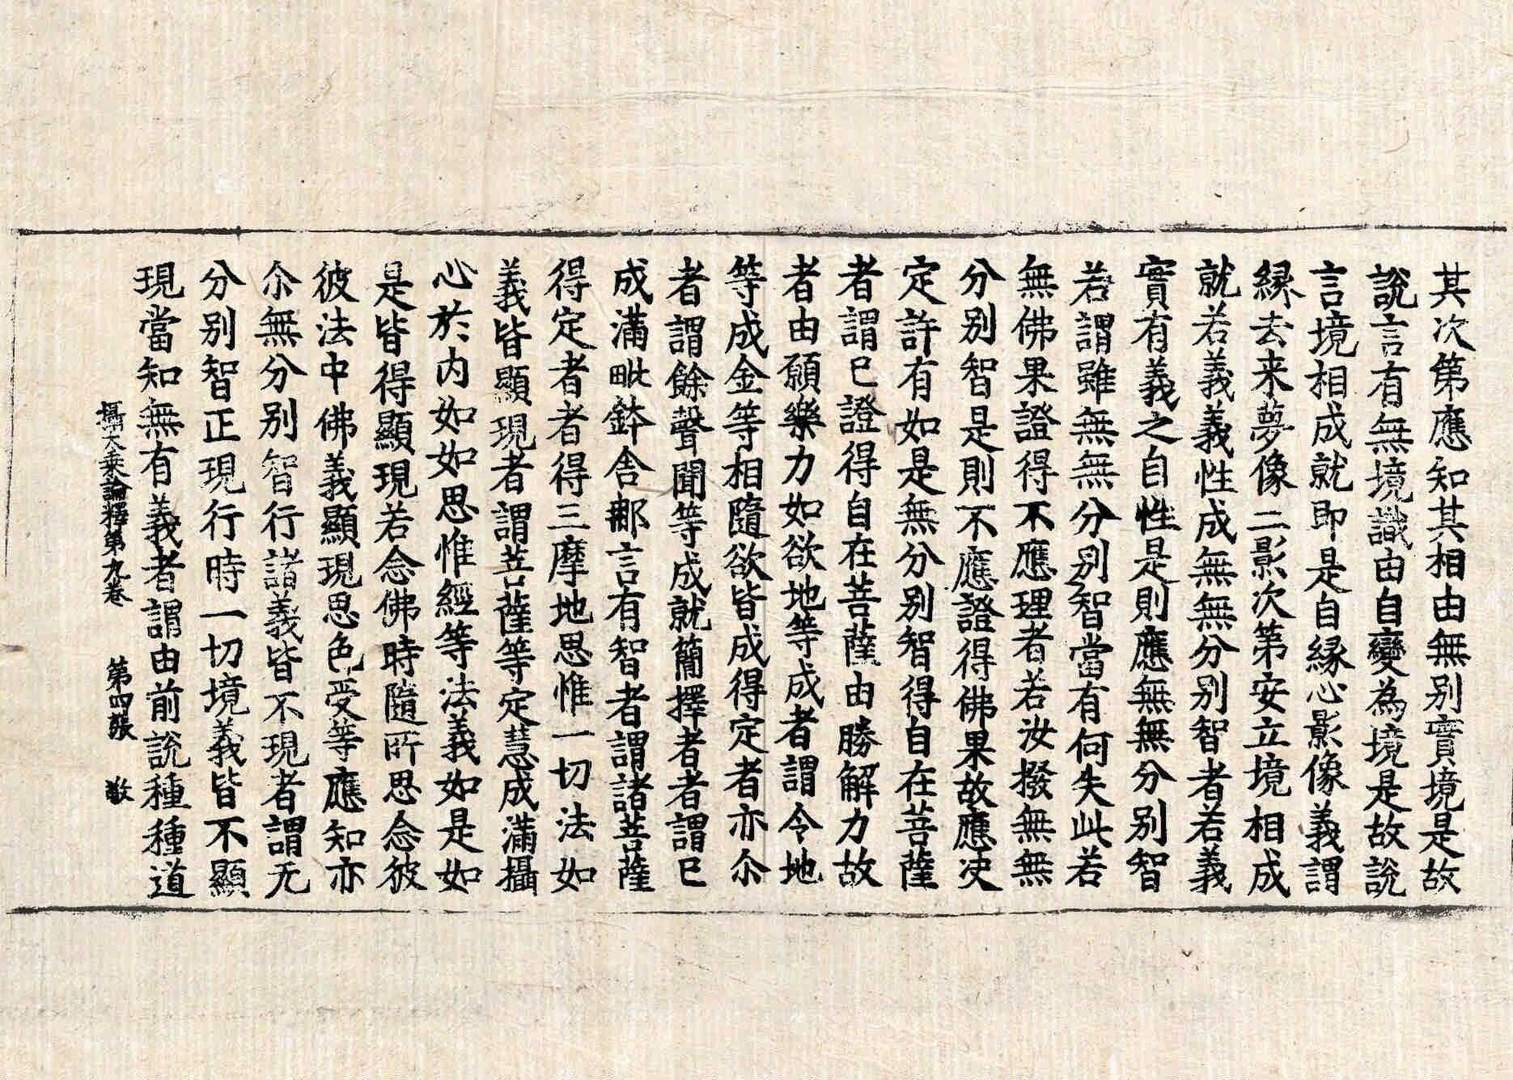 其次第應知其相由無別實境是故
說言有無境識由自變為境是故說
言境相成就即是自緣心影像義謂
緣去来夢像二影次第安立境相成
就若義義性成無無分別智者若義
實有義之自性是則應無無分別智
若謂雖無無分別智當有何失此若
無佛果證得不應理者若汝撥無無
分別智是則不應證得佛果故應决
定許有如是無分別智得自在菩薩
者謂已證得自在菩薩由勝解力故
者由願樂力如欲地等成者謂令地
等成金等相隨欲皆成得定者亦尒
者謂餘聲聞等成就簡擇者者謂已
成滿毗鉢舍那言有智者謂諸菩薩
得定者者得三摩地思惟一切法如
義皆顯現者謂菩薩等定慧成滿攝
心於內如如思惟經等法義如是如
是皆得顯現若念佛時隨所思念彼
彼法中佛義顯現思色受等應知亦
尒無分別智行諸義皆不現者謂无
分別智正現行時一切境義皆不顯
現當知無有義者謂由前說種種道
攝大乘論釋第九卷 第四張 敬